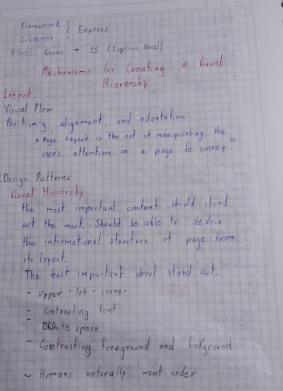 Framework }
Libraries } Express
Html Cross + IS
Mechanisms for Creating a Visual
Hierarchy
Layout
Visual Flow
Positioning, alignment, and indentation
* Page Layout is the art of manipulating the
users attention on a page to convey
Design Patterns
Visual Hierarchy
the most important content should stand
out the most. Should be able to deduce
the informational structure of page from
its layout.
The least important shoul stand out.
- Upper - left - corner
- Contrasting font
- White space
- Contrasting foreground and background
~ Humans naturally want order